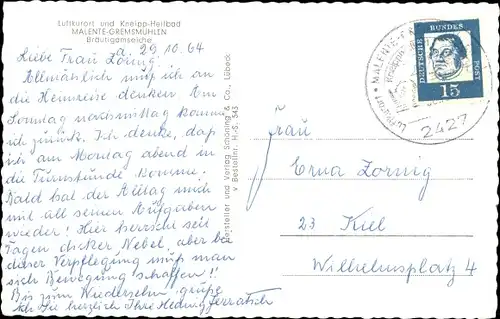 Luftkurort und Kneipp-Heilbad
MALENTE-GREMSMÜHLEN
Bräutigamseiche
a. 29.10.64
Liebe Frau Zornig.
Allmählich muß ich an
die Heimreise denken. Am
Sonntag nachmittag komme
ich zurück. Ich denke, daß
ich am Montag abend in
die Turnstunde komme.
Bald hat der Alltag mich
mit all seinen Aufgaben
wieder! Hier herrscht seit
Tagen dicker Nebel, aber bei
dieser Verpflegung muß man
sich Bewegung schaffen!!
Bis zum Wiedersehn grüße
ich Sie herzlich Ihre Hedwig
Hersteller und Verlag Schöning & Co., Lübeck
Bestellnr. H.-S. 343
DEUTSCHE BUNDESPOST
15
MALENTE-G
Luftkurort
2427
Frau
Erna Zornig
23 Kiel
Wilhelmsplatz 4